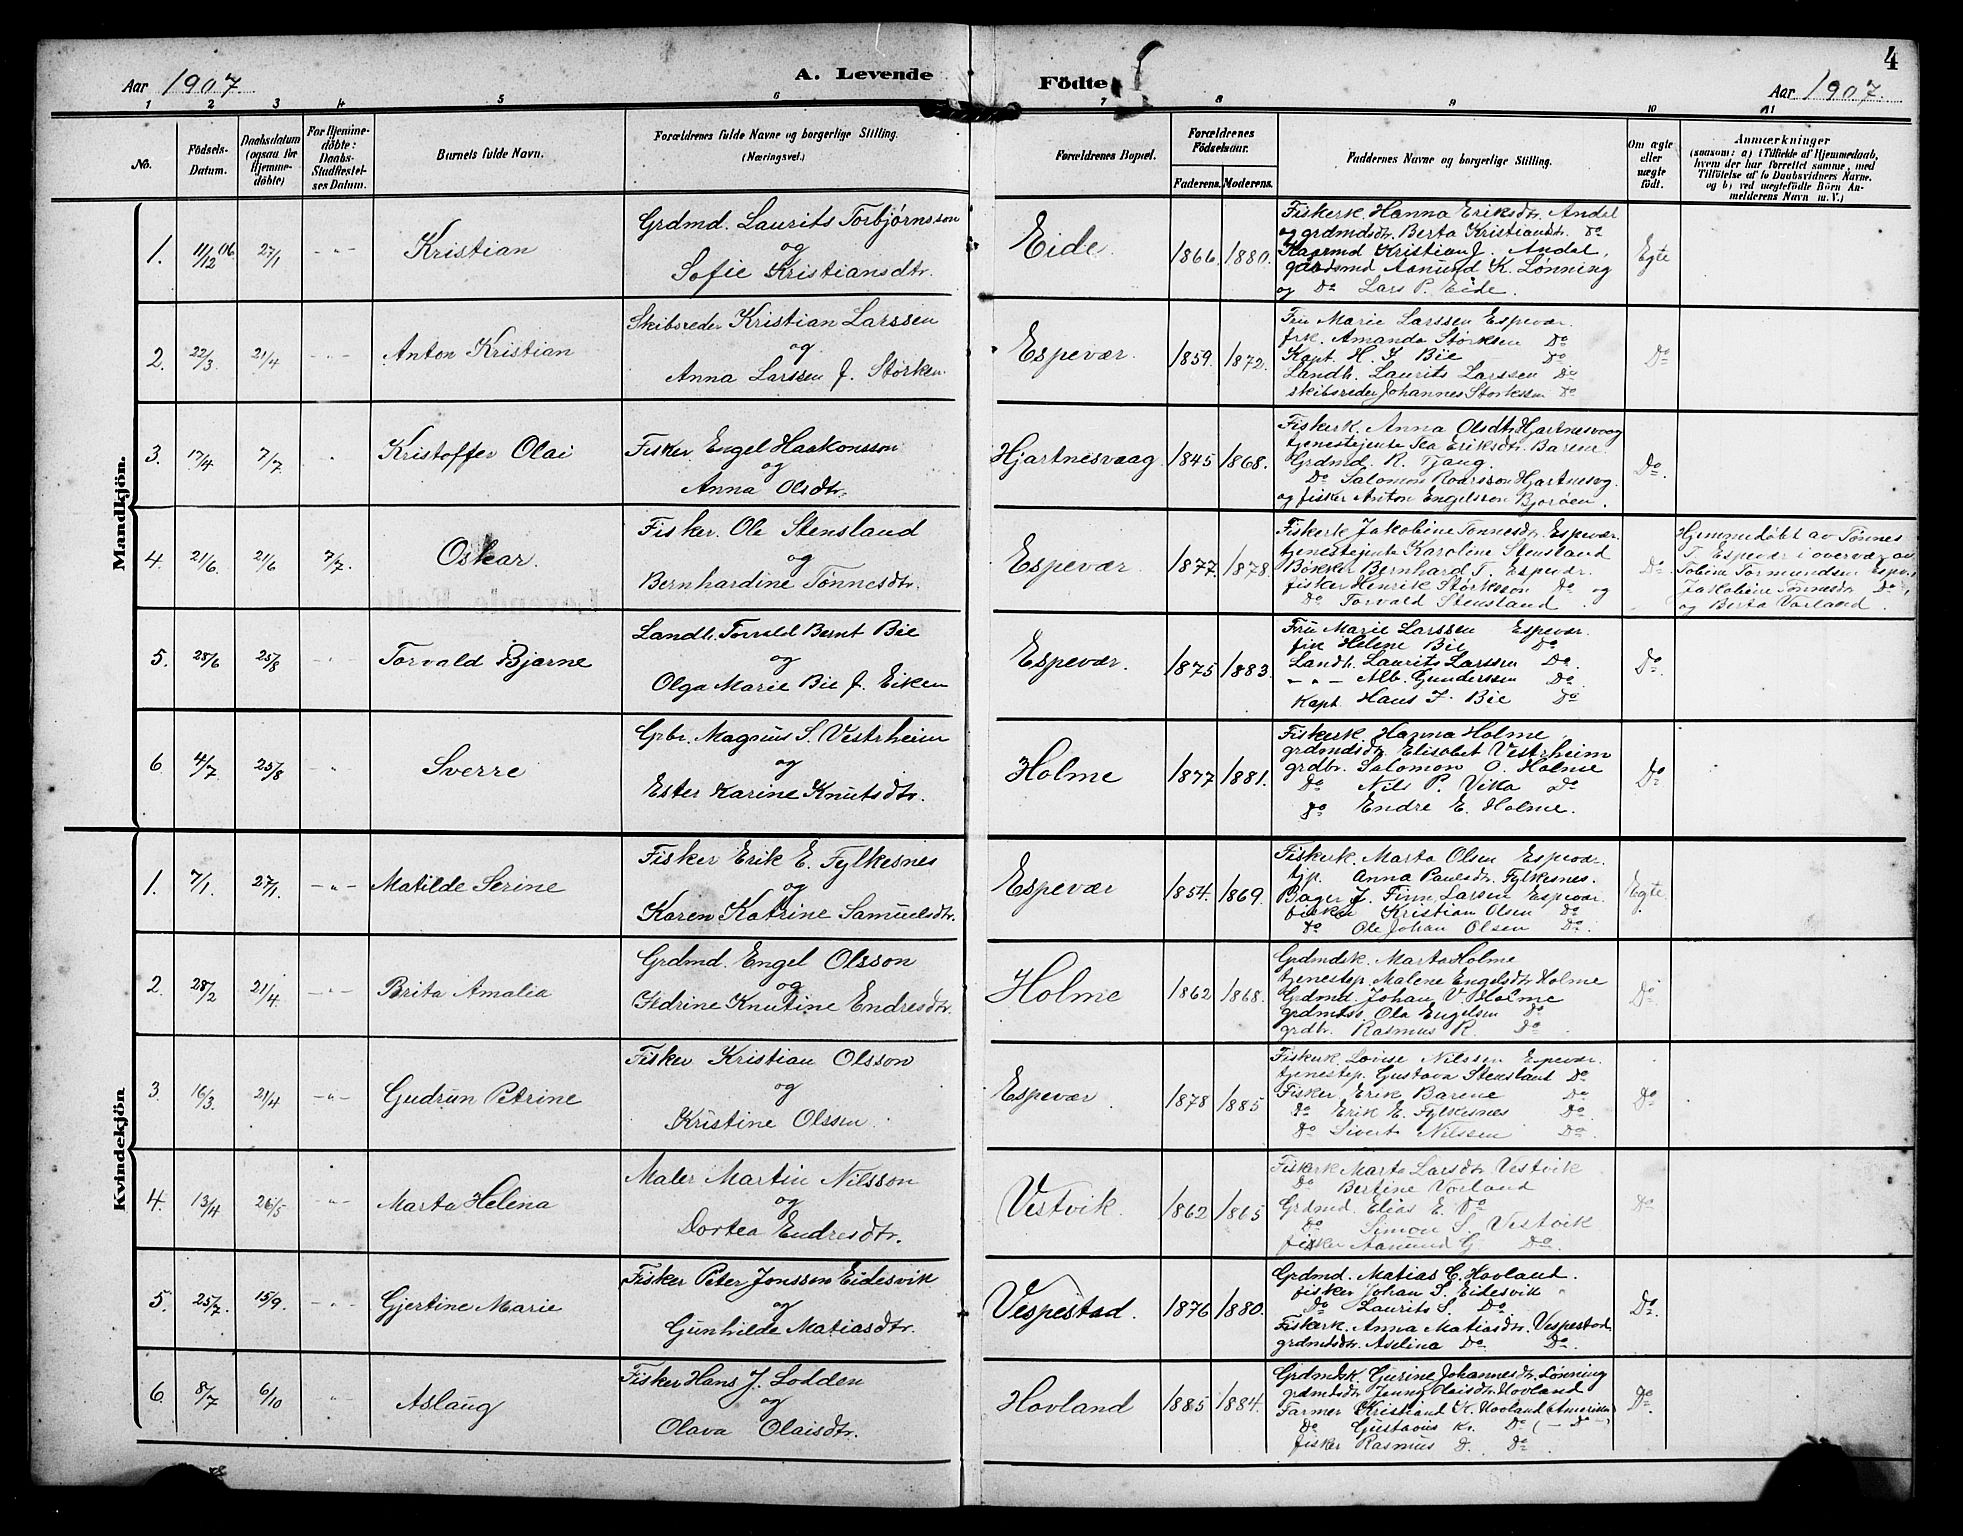 4
Aar 1907.
A. Levende Födte
Aar 1907.
1 2 3 4 5 6 7 8 9 10 11
No.
Födsels-
Datum.
Daabsdatum
(ogsaa for
Hjemme-
döbte)
For Hjemme-
döbte:
Daabs-
Stadfestel-
ses Datum.
Barnets fulde Navn.
Forældrenes fulde Navne og borgerlige Stilling.
(Næringsvei.)
Forældrenes Bopæl.
Forældrenes
Födselsaar.
Faderens. Moderens.
Faddernes Navne og borgerlige Stilling.
Om ægte
eller
uægte
födt.
Anmærkninger
(saasom: a) i Tilfælde af Hjemmedaab,
hvem der har forrettet samme, med
Tilföielse af to Daabsvidners Navne.
og b) ved uægtefödte Börn An-
melderens Navn m. V.)
Mandkjön.
1. 11/12 06 27/1 -"- Kristian
Grdmd. Laurits Torbjørnsson
og
Sofie Kristiansdtr.
Eide. 1866. 1880.
Fiskerk. Hanna Eriksdtr. Andal
og grdmdsdtr. Berta Kristiansdtr. Do
Kaarmd Kristian J. Andal,
gaardsmd Aamund K. Lønning
og Do Lars P. Eide.
Egte
2. 22/3 21/4 -"- Anton Kristian
Skibsreder Kristian Larssen
og
Anna Larssen f. Størksen.
Espevær. 1859. 1872.
Fru Marie Larssen Espevær.
frk. Amanda Størksen Do
Kapt. H. I. Bie Do
Landh. Laurits Larssen Do
skibsreder Johannes Storkssen Do
Do
3. 17/4 7/7 " Kristoffer Olai
Fisker Engel Haakonsson
og
Anna Olsdtr.
Hjartnesvaag 1845 1868.
Fiskerk. Anna Olsdtr. Hjartnesvaag
tjenestejente Eriksdtr. Barene
Grdmd. R. Tjaug.
Do Salomon Roarsson Hjartnesvg
og fisker Anton Engelsson Bjorøen.
Do
4. 21/6. 21/6 7/7. Oskar.
Fisker. Ole Stensland
og
Bernhardine Tønnesdtr.
Espevær. 1877. 1878.
Fiskerk Jakobine Tonnesdtr. Espevær.
tjenestejente Karoline Stensland
Bøkker Bernhard T. Espevær.
fisker Henrik Størksson Do og
Do Torvald Stensland
Do
Hjemmedøbt av Tønnes
T. Espevær i overvær av
Tobine Tormundsen Espev.
Jakobine Tønnesdtr Do,
og Berta Vorland.
5. 28/6 25/8 -"- Torvald Bjarne
Landh. Torvald Bernt Bie
og
Olga Marie Bie f. Eiken
Espevær. 1875 1883.
Fru Marie Larssen Espevær.
frk Helene Bie Do
Landh. Laurits Larssen Do.
- " - Alb. Gunderssen Do.
Kapt. Hans I. Bie Do
Do
6 4/7 25/8 -"- Sverre
Grbr. Magnus S. Vestrheim
og
Ester Karine Knutsdtr.
Holme 1877 1881.
Fiskerk. Hanna Holme.
grdmdsdtr. Elisabet Vestrheim
grdbr. Salomon O. Holme
Do Nils P. Vika Do
Do Endre E. Holme.
Do
Kvindekjön
1. 7/1. 27/1. -"- Matilde Serine
Fisker Erik E. Fylkesnes
og
Karen Katrine Samuelsdtr.
Espevær 1854. 1869.
Fiskerk. Marta Olsen Espevær.
tjp. Anna Paulsdtr. Fylkesnes.
Bager J. Finn Larsen Espevær.
fisker Kristian Olsen Do
Do Ole Johan Olsen Do.
Egte
2. 28/2 21/4. -"- Brita Amalia
Grdmd. Engel Olsson
og
Sidrine Knutine Endresdtr.
Holme 1862 1868.
Grdmdsk. Marta Holme
tjenestep. Malene Engelsdtr. Holme
Grdmd. Johan V. Holme
grdmdss. Ola Engelsen Do
grdbr. Rasmus R. Do.
Do
3. 16/3. 21/4 -"- Gudrun Petrine
Fisker Kristian Olsson
og
Kristine Olssen.
Espevær. 1878 1885
Fiskerk. Lovise Nilssen Espevær.
tjenestep. Gustava Stensland Do
Fisker Erik Barene Do
Do Erik E. Fylkesnes Do
Do Sivert Nilssen Do.
Do
4. 13/4 26/5 -"- Marta Helena
Maler Martin Nilsson
og
Dortea Endresdtr.
Vestvik. 1862 1865
Fiskerk Marta Larsdtr. Vestvik
Do Bertine Vorland
Grdmd. Elias E. Do
Do Simon S. Vestvik
fisker Aamund G Do.
Do
5. 25/7. 15/9. -"- Gjertine Marie
Fisker Peter Jonsson Eidesvik
og
Gunhilde Matiasdtr.
Vespestad. 1876 1880.
Grdmd. Matias C. Hovland.
fisker Johan S. Eidesvik
Do Laurits S. Do.
Fiskerk. Anna Matiasdtr. Vespestad
grdmdsdtr. Aselina Do Do.
Do
6. 8/7 6/10 -"- Aslaug
Fisker Hans J. Lodden
og
Olava Olaisdtr.
Hovland 1885 1884.
Grdmdsk. Gurine Johannesdtr. Lønning
grdmdsdtr Jenny Olaisdtr. Hovland
Farmer Kristiand K. Hovland (Amerika)
Do Gustavus Kr. Do (-Do-)
fisker Rasmus D. Do.
Do